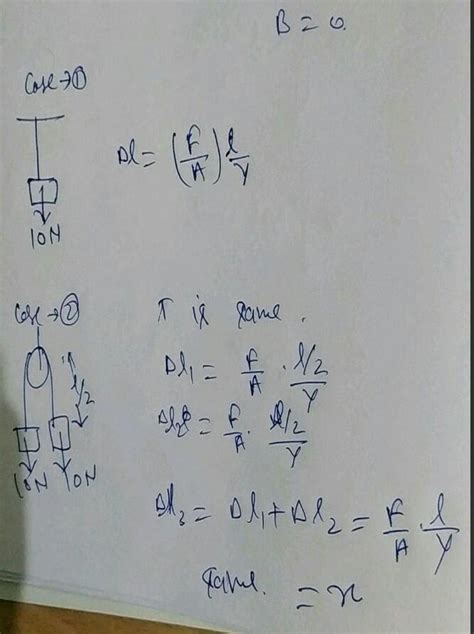 B = 0.
Case → ①
Δl = (F/A) l/Y
1
10N
Case → ②
T is same.
l/2
Δl₁ = F/A · l/2/Y
Δl₂ = F/A · l/2/Y
10N 10N
Δl₃ = Δl₁ + Δl₂ = F/A · l/Y
same. = x